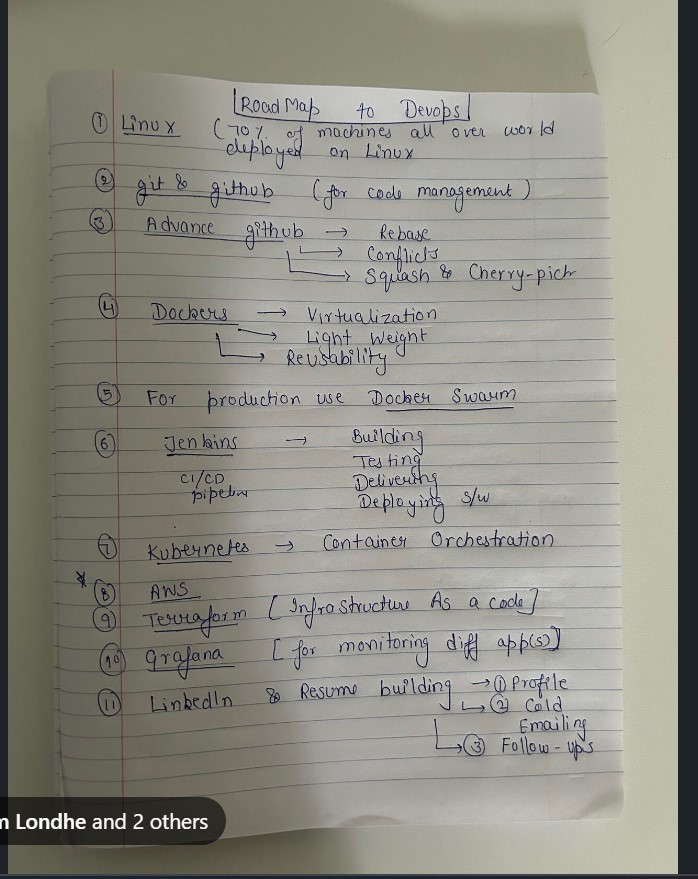 Road Map to Devops
① Linux (70% of machines all over world
deployed on Linux
② git & github (for code management)
③ Advance github → Rebase
→ Conflicts
→ Squash & Cherry-pick
④ Dockers → Virtualization
→ Light Weight
→ Reusability
⑤ For production use Docker Swarm
⑥ Jenkins → Building
Testing
CI/CD Delivering
pipeline Deploying s/w
⑦ Kubernetes → Container Orchestration
* ⑧ AWS
⑨ Terraform [Infrastructure As a code]
⑩ Grafana [for monitoring diff app(s)]
⑪ LinkedIn & Resume building → ① Profile
→ ② Cold
Emailing
→ ③ Follow-ups
Londhe and 2 others